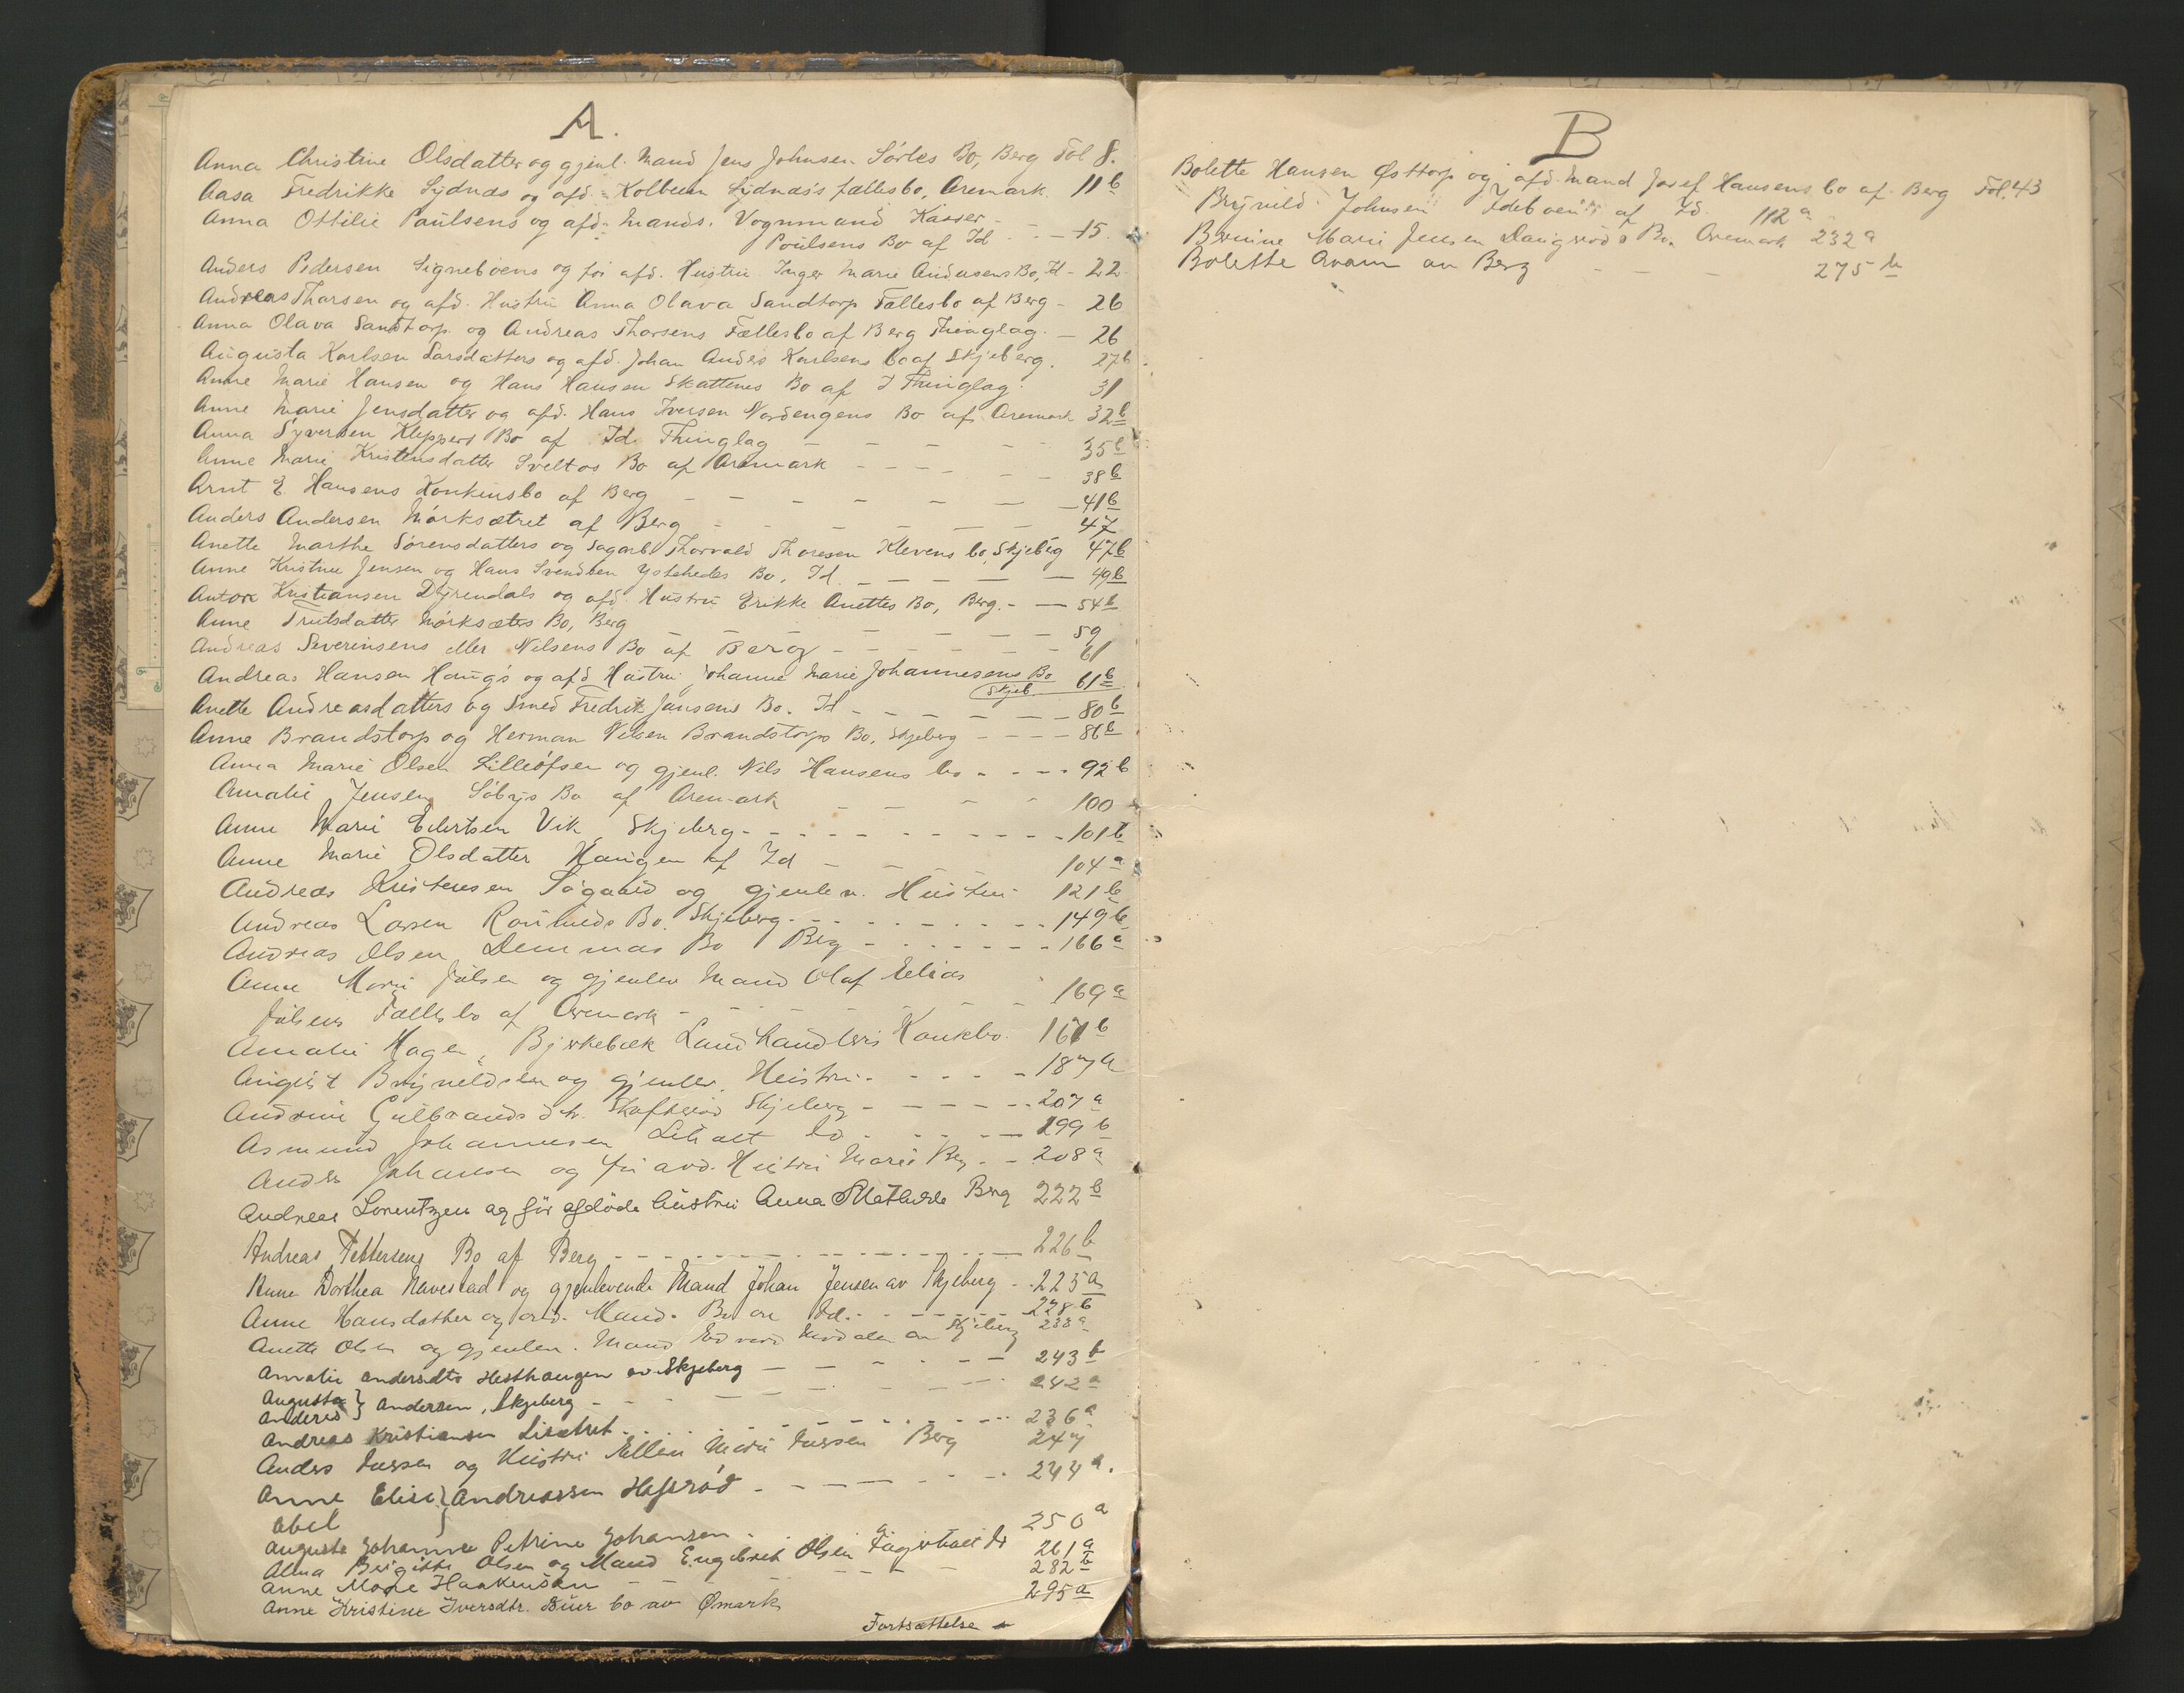 A.
Anna Christine Olsdatter og gjenl. Mand Jens Johnsen Sörtes Bo, Berg Fol 8.
Aasa Fredrikke Sydnæs og afd. Kolbein Sydnæs's fællesbo, Aremark. 11b
Anna Ottilie Paulsens og afd. Mands. Vognmand Kasser
Poulsens Bo af Id - - - 15
Anders Pedersen Signeböens og for afd. Hustru Inger Marie Andersens Bo, Id - 22
Andreas Thorsen og afd. Hustru Anna Olava Sandtorp Fællesbo af Berg - 26
Anna Olava Sandtorp og Andreas Thorsens Fællesbo af Berg Thinglag. - 26
Augusta Karlsen Larsdatters og afd. Johan Anders Karlsens bo af Skjeberg. 27b
Anne Marie Hansen og Hans Hansen Skattenes Bo af I Thinglag. 31
Anne Marie Jensdatter og afd. Hans Iversen Nordengens Bo af Aremark 32b
Anna Syversen Kleppers Bo af Id. Thinglag - - - - - 35b
Anne Marie Kristensdatter Sveltos Bo af Aremark - - - - - 38b
Arnt E. Hansens Konkursbo af Berg - - - - - 41b
Anders Andersen Mörksætret af Berg - - - - - 47
Anette Marthe Sörensdatters og Sagarb. Thorvald Thoresen Klevens bo, Skjeberg 47b
Anne Kristine Jensen og Hans Svendsen Ystehedes Bo, Id. - - - - - 49b
Anton Kristiansen Dyrendals og afd. Hustru Erikke Anettes Bo, Berg. - - 54b
Anne Trulsdatter Mörksæters Bo, Berg - - - - - 59
Andreas Severinsens eller Nilsens Bo af Berg - - - - - 61
Andreas Hansen Haugs og afd Hustru Johanne Marie Johannesens Bo 61b
Skjeb.
Anette Andreasdatters og Smed Fredrik Jansens Bo. Id - - - - - 80b
Anne Brandstorp og Herman Nilsen Brandstorps Bo, Skjeberg - - - - 86b
Anna Marie Olsen Lilleöfsen og gjenl. Nils Hansens bo - - - - 92b
Amalie Jensen Söbys Bo af Aremark - - - - 100
Anne Marie Eilertsen Vik, Skjeberg - - - - - 101b
Anne Marie Olsdatter Haugen af Id - - - - 104a
Andreas Kristensen Sögaard og gjenlev. Hustru 121b
Andreas Larsen Bo. Skjeberg - - - - - 149b
Andreas Olsen Demmas Bo Berg - - - - - 166a
Anne Marie Julsen og gjenlev Mand Olaf Elias
Julsens Fællesbo af Aremark - - - - 169a
Amalie Hagen, Bjerkebæk Landhandleri Konkbo. 171b
August Brynildsen og gjenlev. Hustru - - - - 187a
Andrine Gulbrandsdtr. Skofteröd Skjeberg - - - - - 207a
Asmund Johannesen Id - - - - - 199b
Anders Johansen og for avd. Hustru Marie Berg - - 208a
Andreas Lorentzen og för afdöde hustru Anna Mathilde Berg 222b
Andreas Pettersens Bo af Berg - - - - - 226b
Anne Dorthea Navestad og gjenlevende Mand Johan Jensen av Skjeberg - - 225a
Anne Hansdatter og avd. Mands Bo av Id. - - - - - 228b
Anette Olsen og gjenlev. Mand Edvard av Skjeberg 233a
Amalie Andersdtr Hesthaugen av Skjeberg - - - - - 243b
Augusta } Andersen, Skjeberg - - - - - 242a
Anders
Andreas Kristiansen Lisætret - - - - - 236a
Anders Iversen og Hustru Ellen Marie Iversen Berg 247
Anne Elise } Andreassen Hafsröd - - - - - 244a.
Abel
Augusta Johanne Petrine Johansen - - 250a
Alma Birgitte Olsen og Mand Engebret Olsen Id 261a
Anne Marie Haakensen - - - - - 282b
Anne Kristine Iversdtr. Buer bo av Ømark 295a
Fortsættelse
B
Bolette Hansen Østtorp og afd. Mand Josef Hansens bo af Berg Fol. 43
Brynild Johnsen Idebøens af Id. 112a
Bernine Marie Jensen Daugröds Bo. Aremark 232a
Bolette Aram av Berg - - - 275b